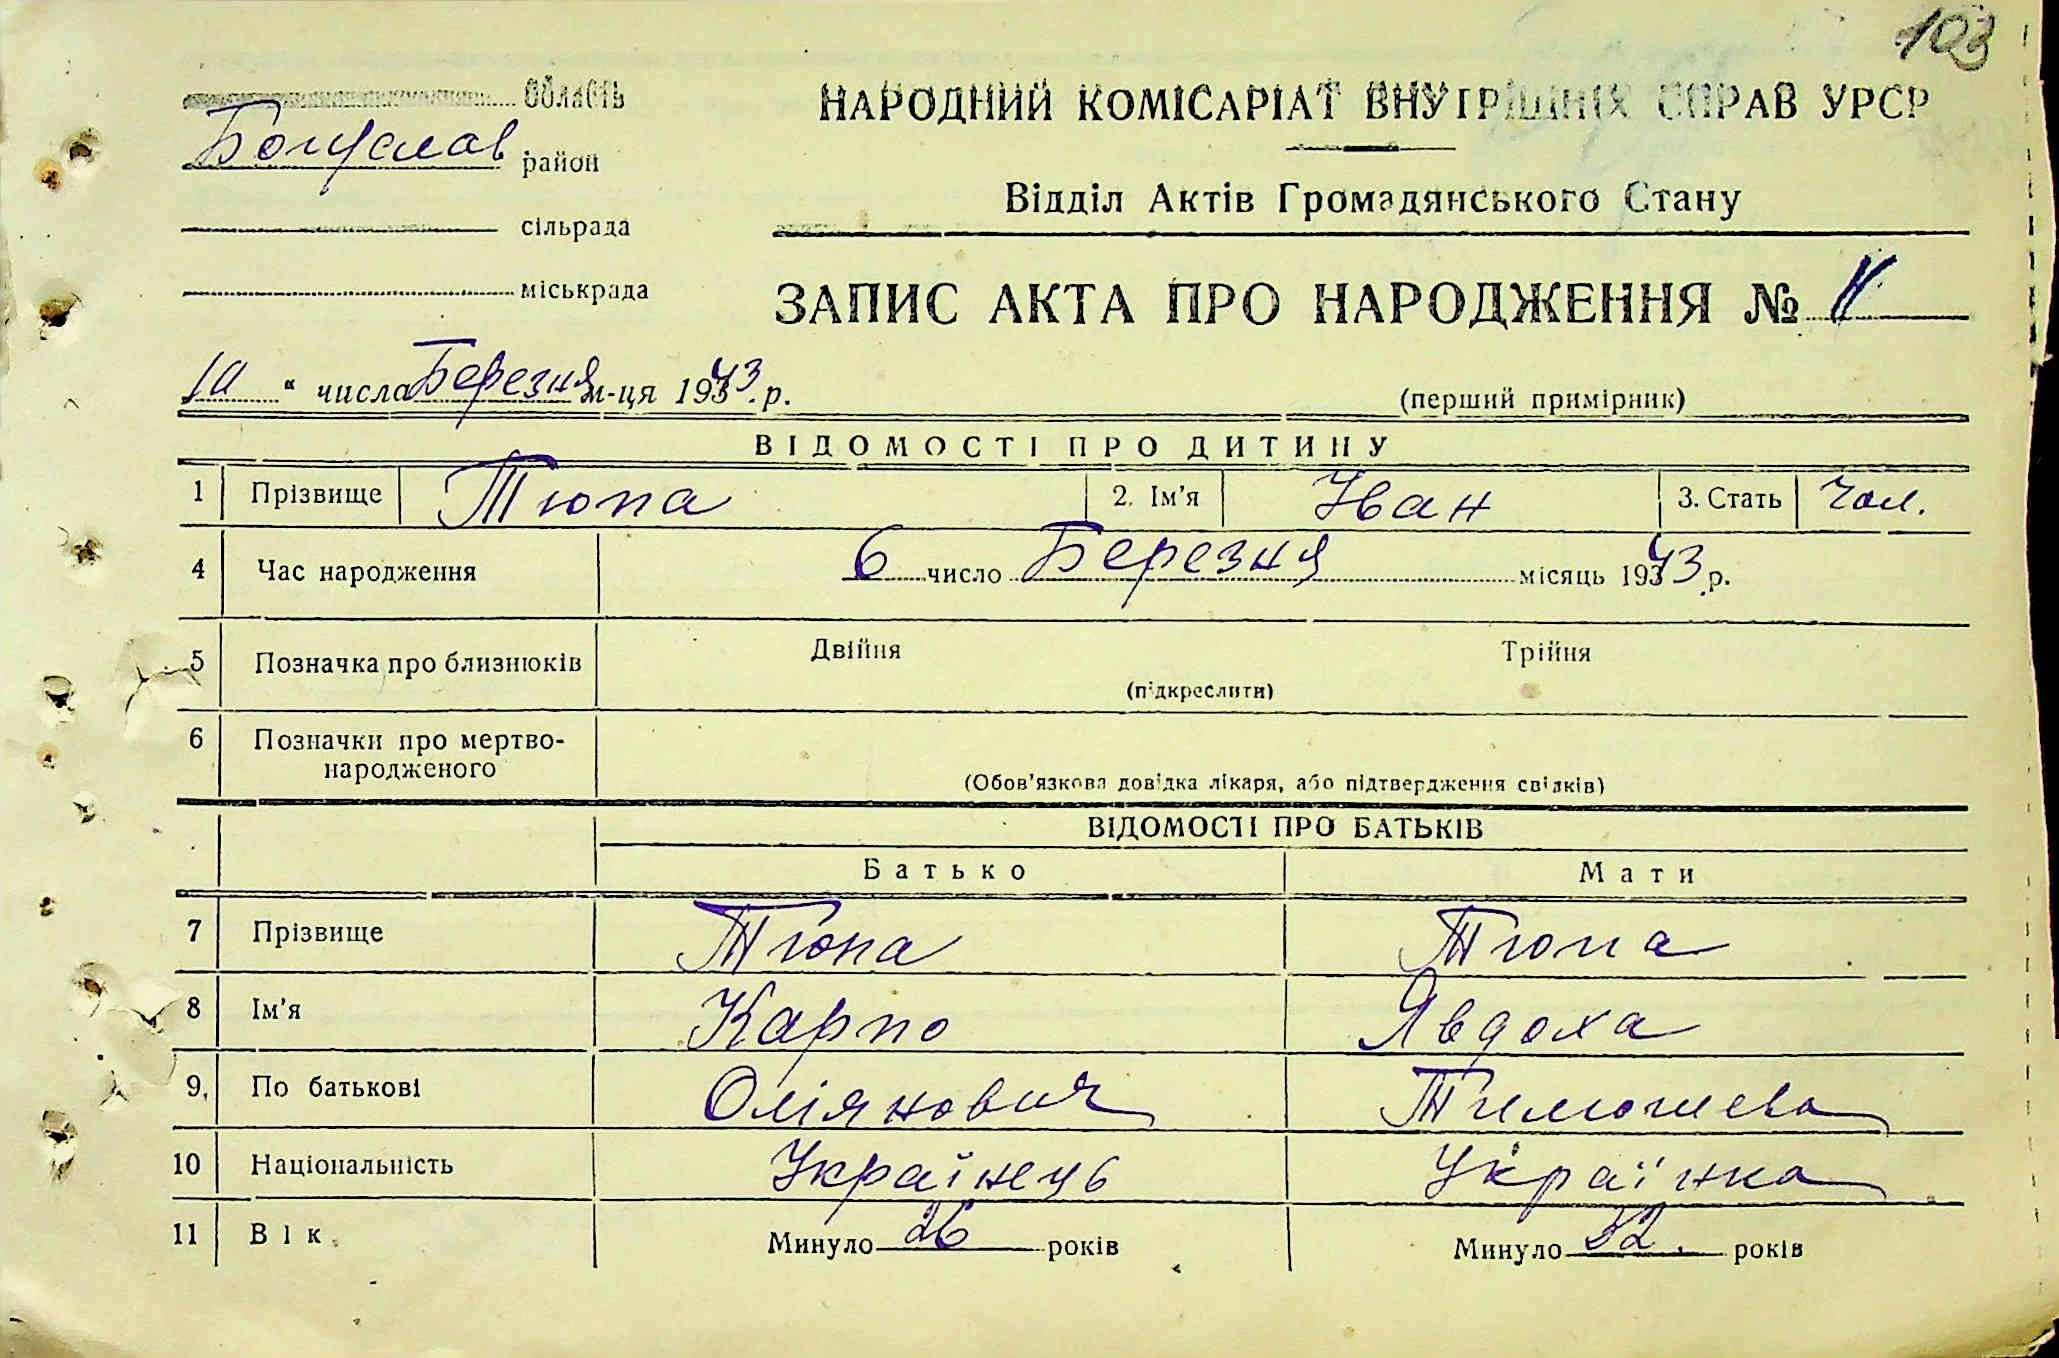 103
область
НАРОДНИЙ КОМІСАРІАТ ВНУТРІШНІХ СПРАВ УРСР
Богуслав район
Відділ Актів Громадянського Стану
сільрада
міськрада
ЗАПИС АКТА ПРО НАРОДЖЕННЯ №
10 " числа Березня м-ця 1943 р.
(перший примірник)
ВІДОМОСТІ ПРО ДИТИНУ
1 Прізвище Тюпа 2. Ім'я Іван 3. Стать Чол.
4 Час народження 6 число Березня місяць 1943 р.
5 Позначка про близнюків Двійня Трійня
(підкреслити)
6 Позначки про мертво-
народженого
(Обов'язкова довідка лікаря, або підтвердження свідків)
ВІДОМОСТІ ПРО БАТЬКІВ
Батько Мати
7 Прізвище Тюпа Тюпа
8 Ім'я Карпо Явдоха
9. По батькові Оліянович Тимошева
10 Національність Українець Українка
11 Вік Минуло 26 років Минуло 32. років